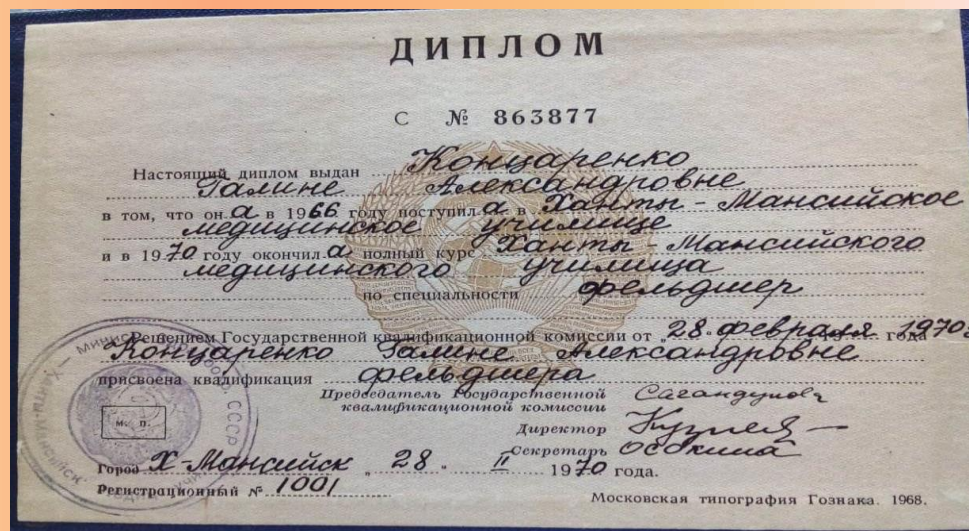 ДИПЛОМ
С № 863877
Настоящий диплом выдан Концаренко
Галине Александровне
в том, что он а в 1966 году поступил а в Ханты-Мансийское
медицинское училище
и в 1970 году окончил а полный курс Ханты-Мансийского
медицинского училища
по специальности фельдшер
Решением Государственной квалификационной комиссии от „28" февраля 1970 г года
Концаренко Галине Александровне
присвоена квалификация фельдшера
Председатель Государственной
квалификационной комиссии
Директор
Секретарь Осокина
М. П.
Город Х-Мансийск „28" II 1970 года.
Регистрационный № 1001
Московская типография Гознака. 1968.